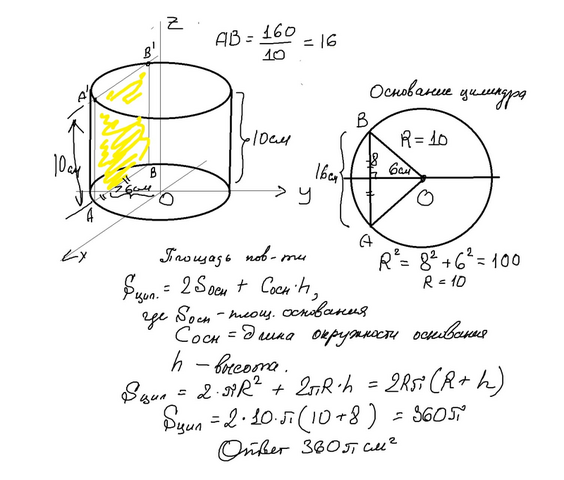 Z
AB = 160/10 = 16
B'
A'
10см
10см
B
6см
O
A
y
x
Основание цилиндра
B
R = 10
8
6см
16см
O
A
R² = 8² + 6² = 100
R = 10
Площадь пов-ти
Sцил. = 2Sосн + Cосн·h,
где Sосн - площ. основания
Cосн = длина окружности основания
h - высота.
Sцил = 2·πR² + 2πR·h = 2Rπ(R + h)
Sцил = 2·10·π(10+8) = 360π
Ответ 360π см²